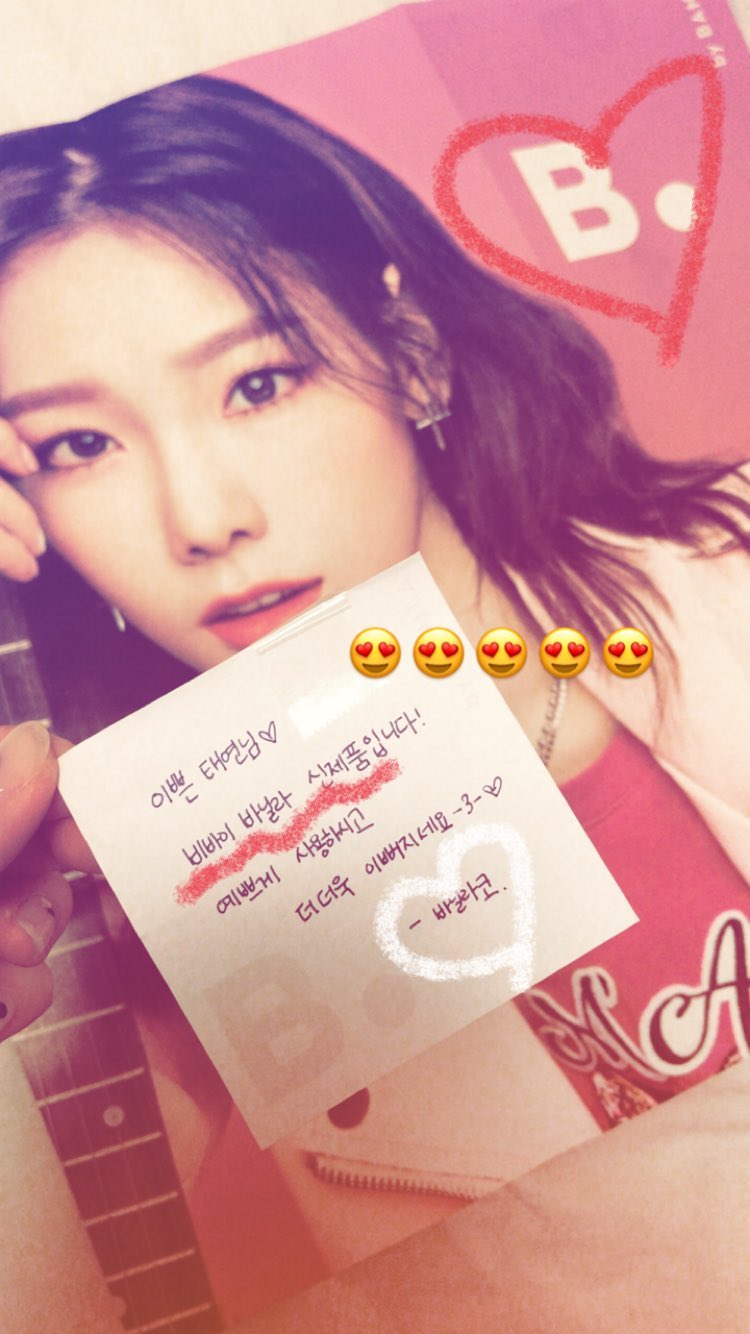 by BAN
B.
이쁜 태연님♡
비바이 바닐라 신제품입니다!
예쁘게 사용하시고
더더욱 이뻐지세요-3-♡
- 바닐라코.
B.